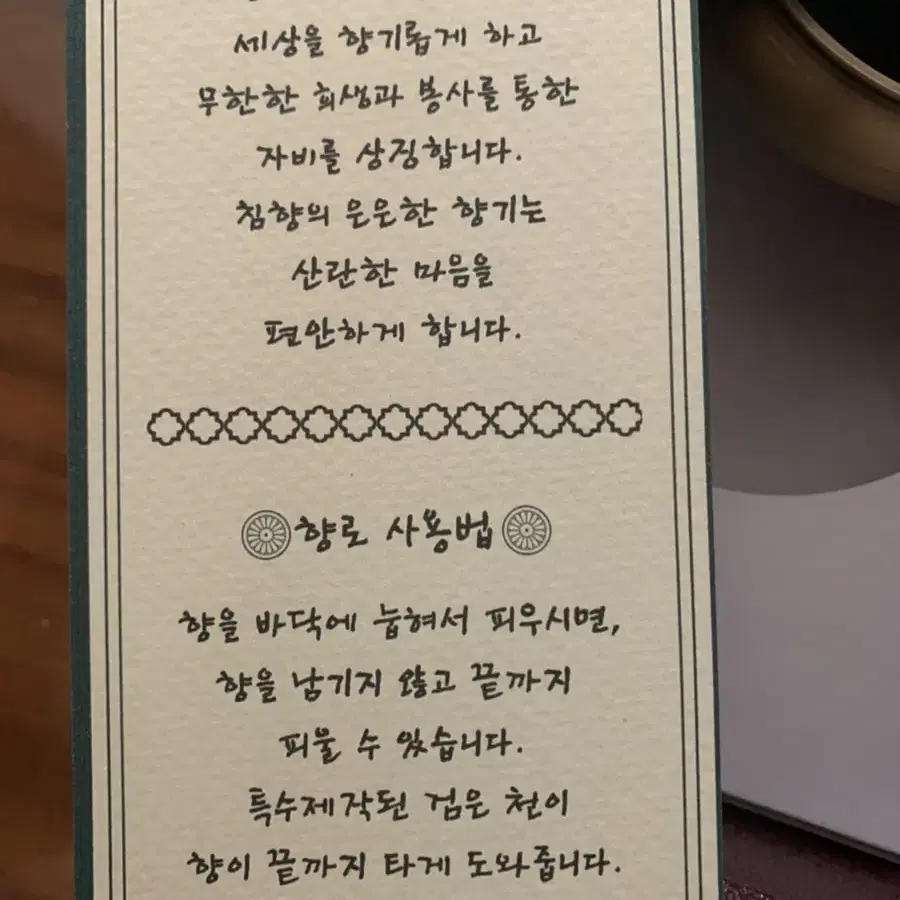 세상을 향기롭게 하고
무한한 희생과 봉사를 통한
자비를 상징합니다.
침향의 은은한 향기는
산란한 마음을
편안하게 합니다.
향로 사용법
향을 바닥에 눕혀서 피우시면,
향을 남기지 않고 끝까지
피울 수 있습니다.
특수제작된 검은 천이
향이 끝까지 타게 도와줍니다.